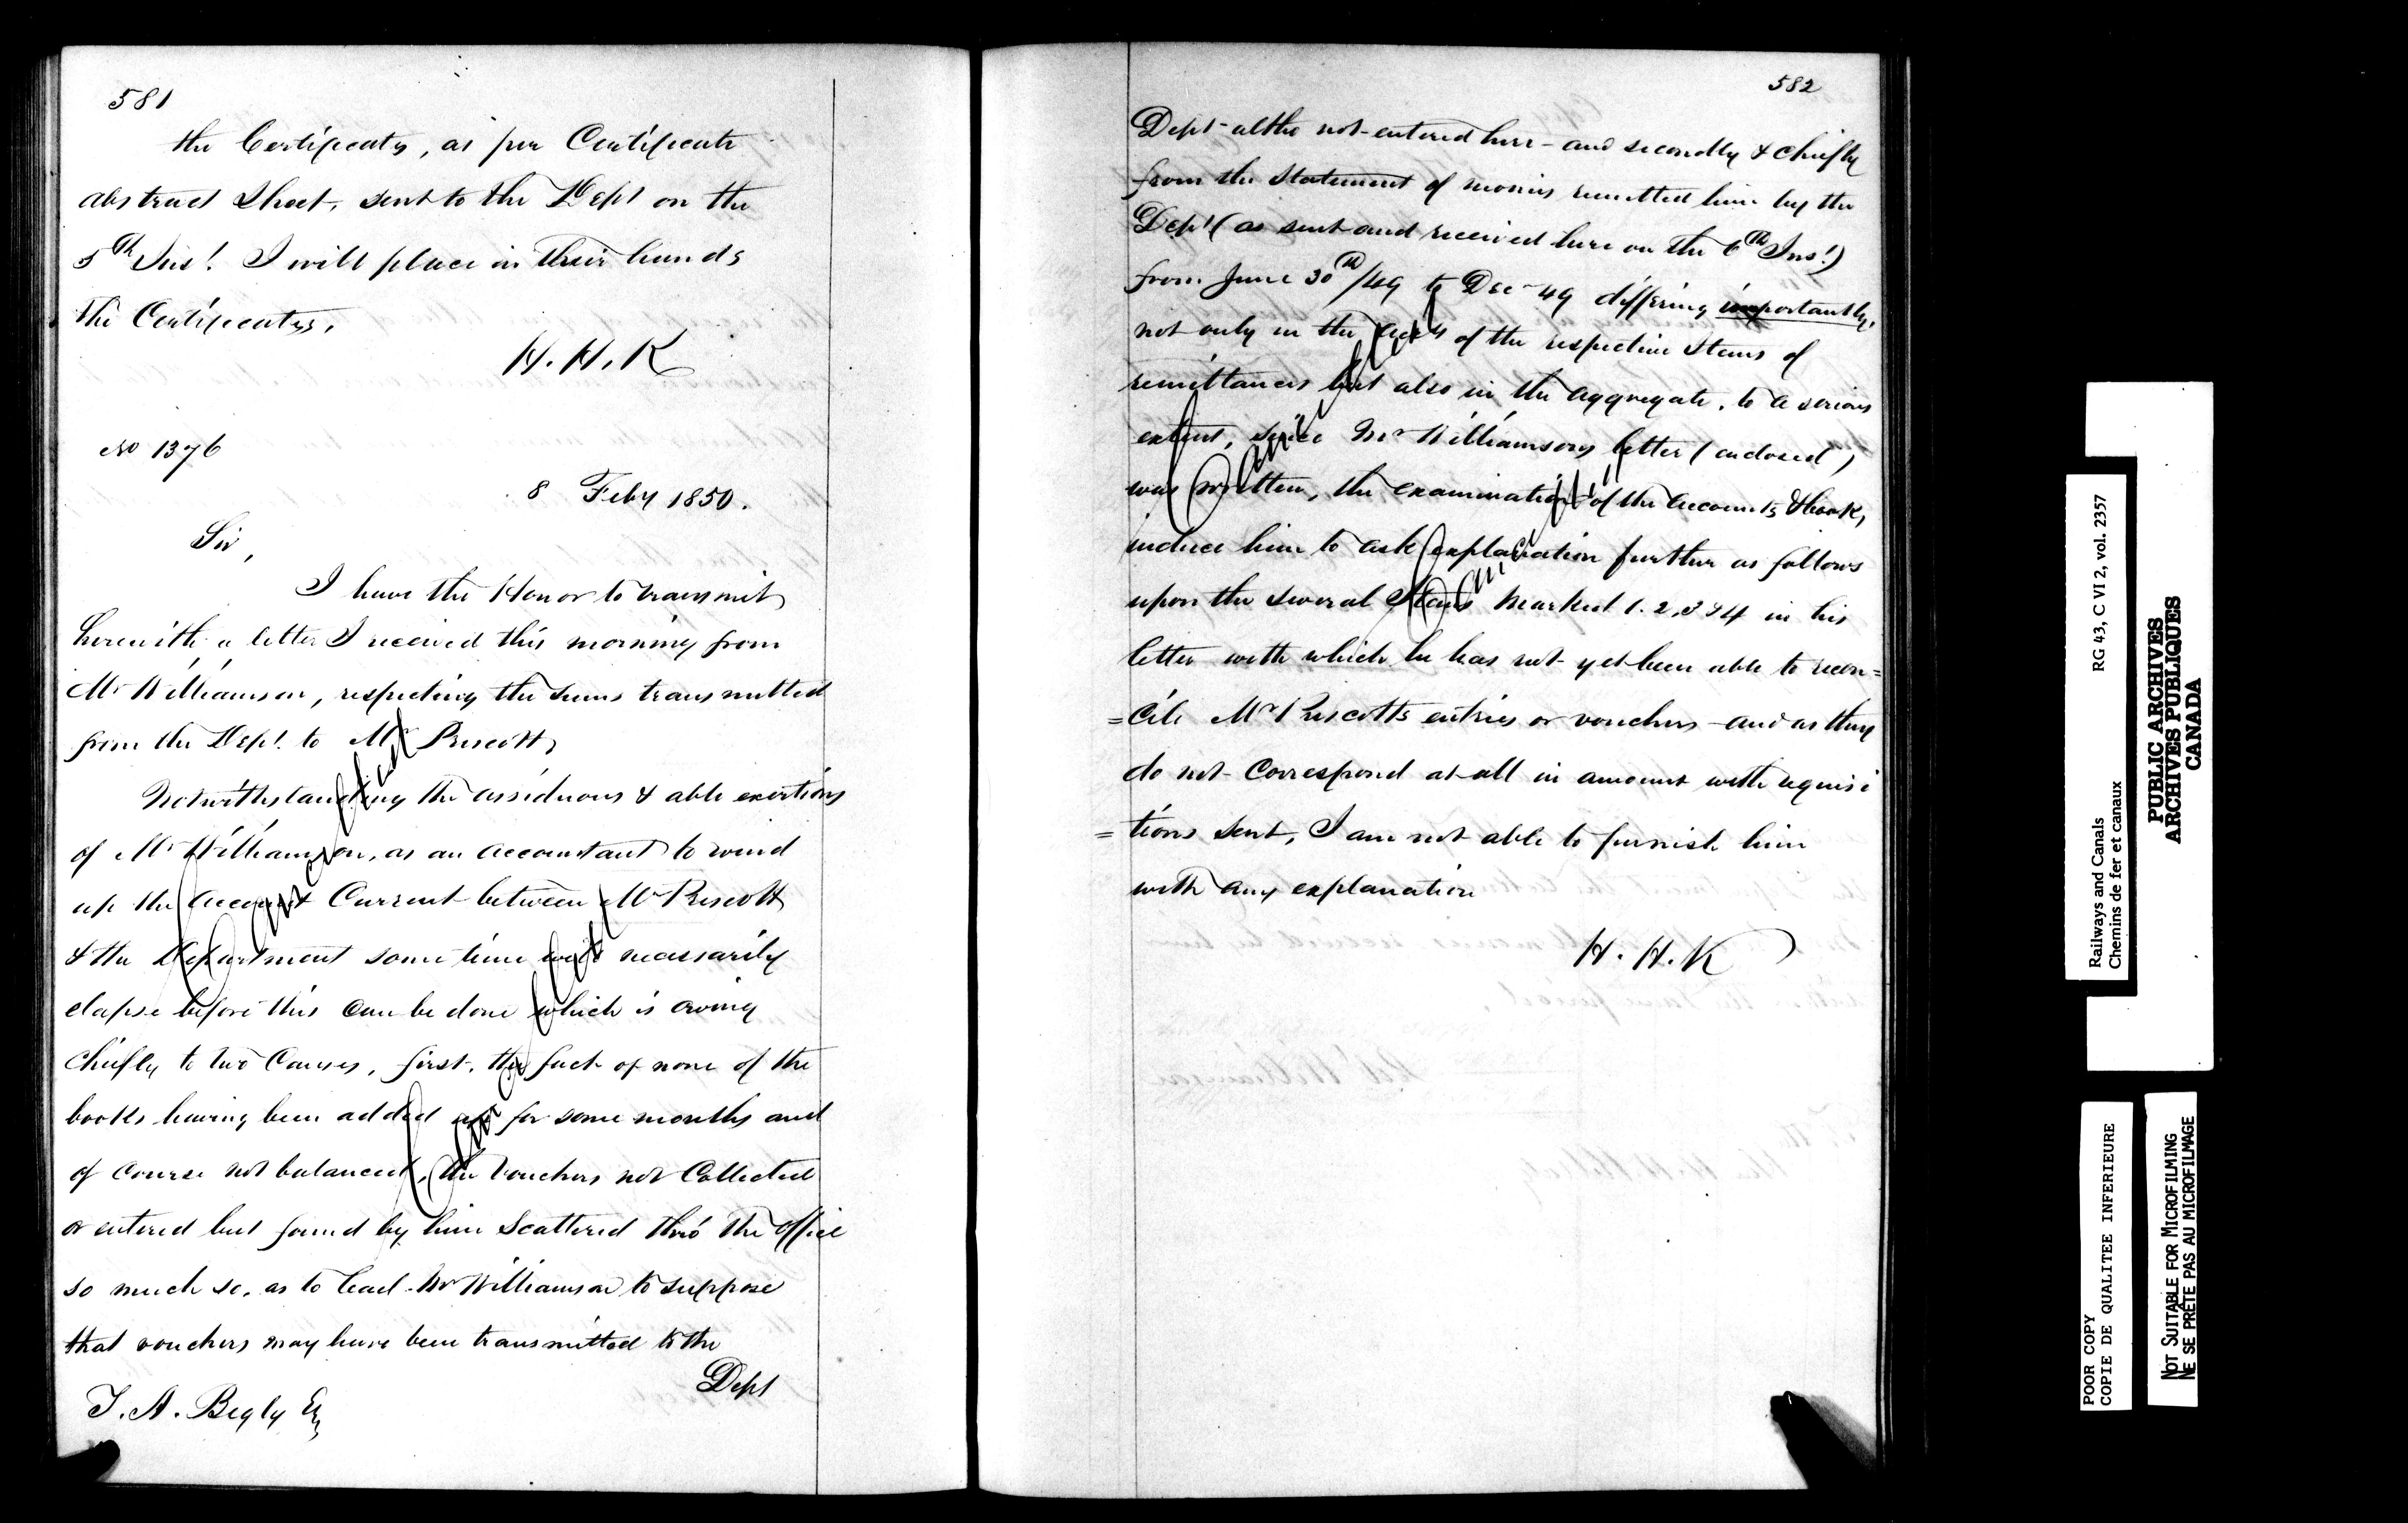 581
the Certificates, as per Certificate
abstract Sheet, sent to the Dept on the
5th Inst. I will place in their hands
the Certificates,
H. H. K
No 1376
8 Feby 1850.
Sir,
I have the Honor to transmit
herewith a letter I received this morning from
Mr Williamson, respecting the sums transmitted
from the Dept. to Mr Prescott,
Notwithstanding the assiduous & able exertions
of Mr Williamson, as an accountant to wind
up the Account Current between Mr Prescott
& the Department some time will necessarily
elapse before this can be done which is owing
Chiefly to two Causes, first, the fact of none of the
books having been added up for some months and
of course not balanced, the vouchers not Collected
or entered but found by him Scattered thro' the office
so much so, as to lead Mr Williamson to suppose
that vouchers may have been transmitted to the
Dept
T. A. Begly Esq
582
Dept - altho not entered here - and secondly & chiefly
from the Statement of monies remitted him by the
Dept (as sent and received here on the 6th Inst.)
from June 30th/49 to Dec - 49 differing importantly,
not only in the of the respective Items of
remittances but also in the aggregate, to a serious
extent, since Mr Williamsons letter (enclosed)
was written, the examination of the accounts & books,
induce him to ask explanation further as follows
upon the several Items marked 1. 2, 3 & 4 in his
letter with which he has not yet been able to recon=
=cile Mr Prescotts entries or vouchers - and as they
do not Correspond at all in amount with requisi
=tions sent, I am not able to furnish him
with any explanation
H. H. K
Railways and Canals RG 43, C VI 2, vol. 2357
Chemins de fer et canaux
PUBLIC ARCHIVES
ARCHIVES PUBLIQUES
CANADA
POOR COPY
COPIE DE QUALITEE INFERIEURE
NOT SUITABLE FOR MICROFILMING
NE SE PRÊTE PAS AU MICROFILMAGE